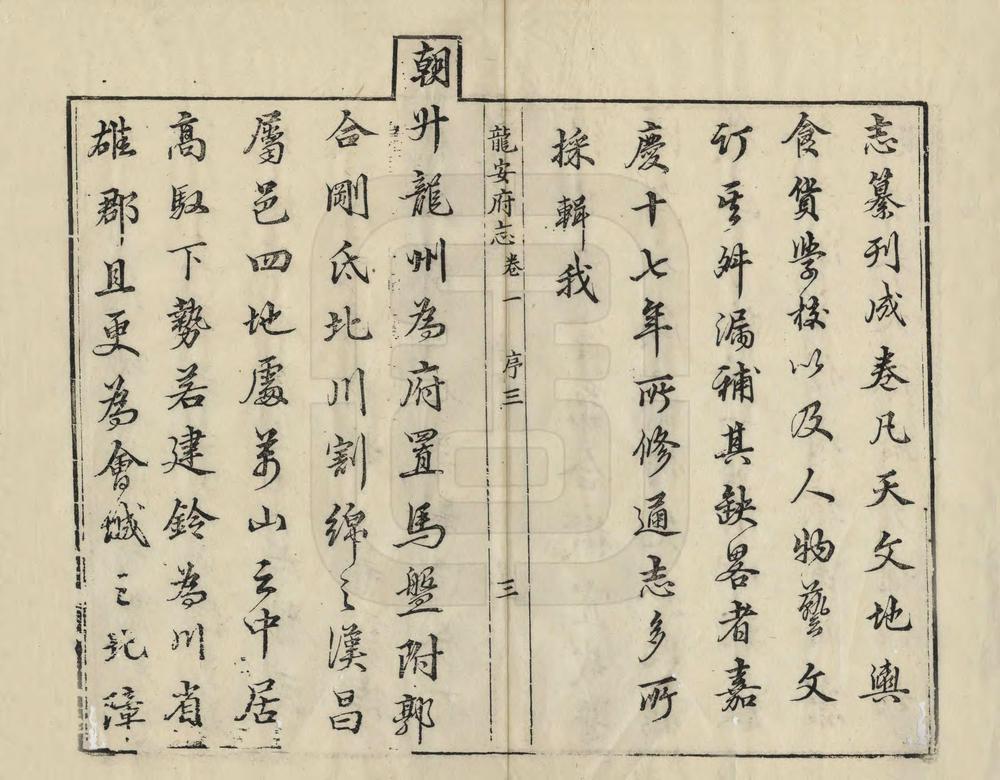 志纂刊成卷凡天文地輿
食貨學校以及人物藝文
訂其舛漏補其缺畧者嘉
慶十七年所修通志多所
採輯我
龍安府志卷一 序三 三
朝升龍州為府置馬盤附郭
合剛氐北川割綿之漢昌
屬邑四地處萬山之中居
高馭下勢若建鈴為川省
雄郡且更為會城之北障